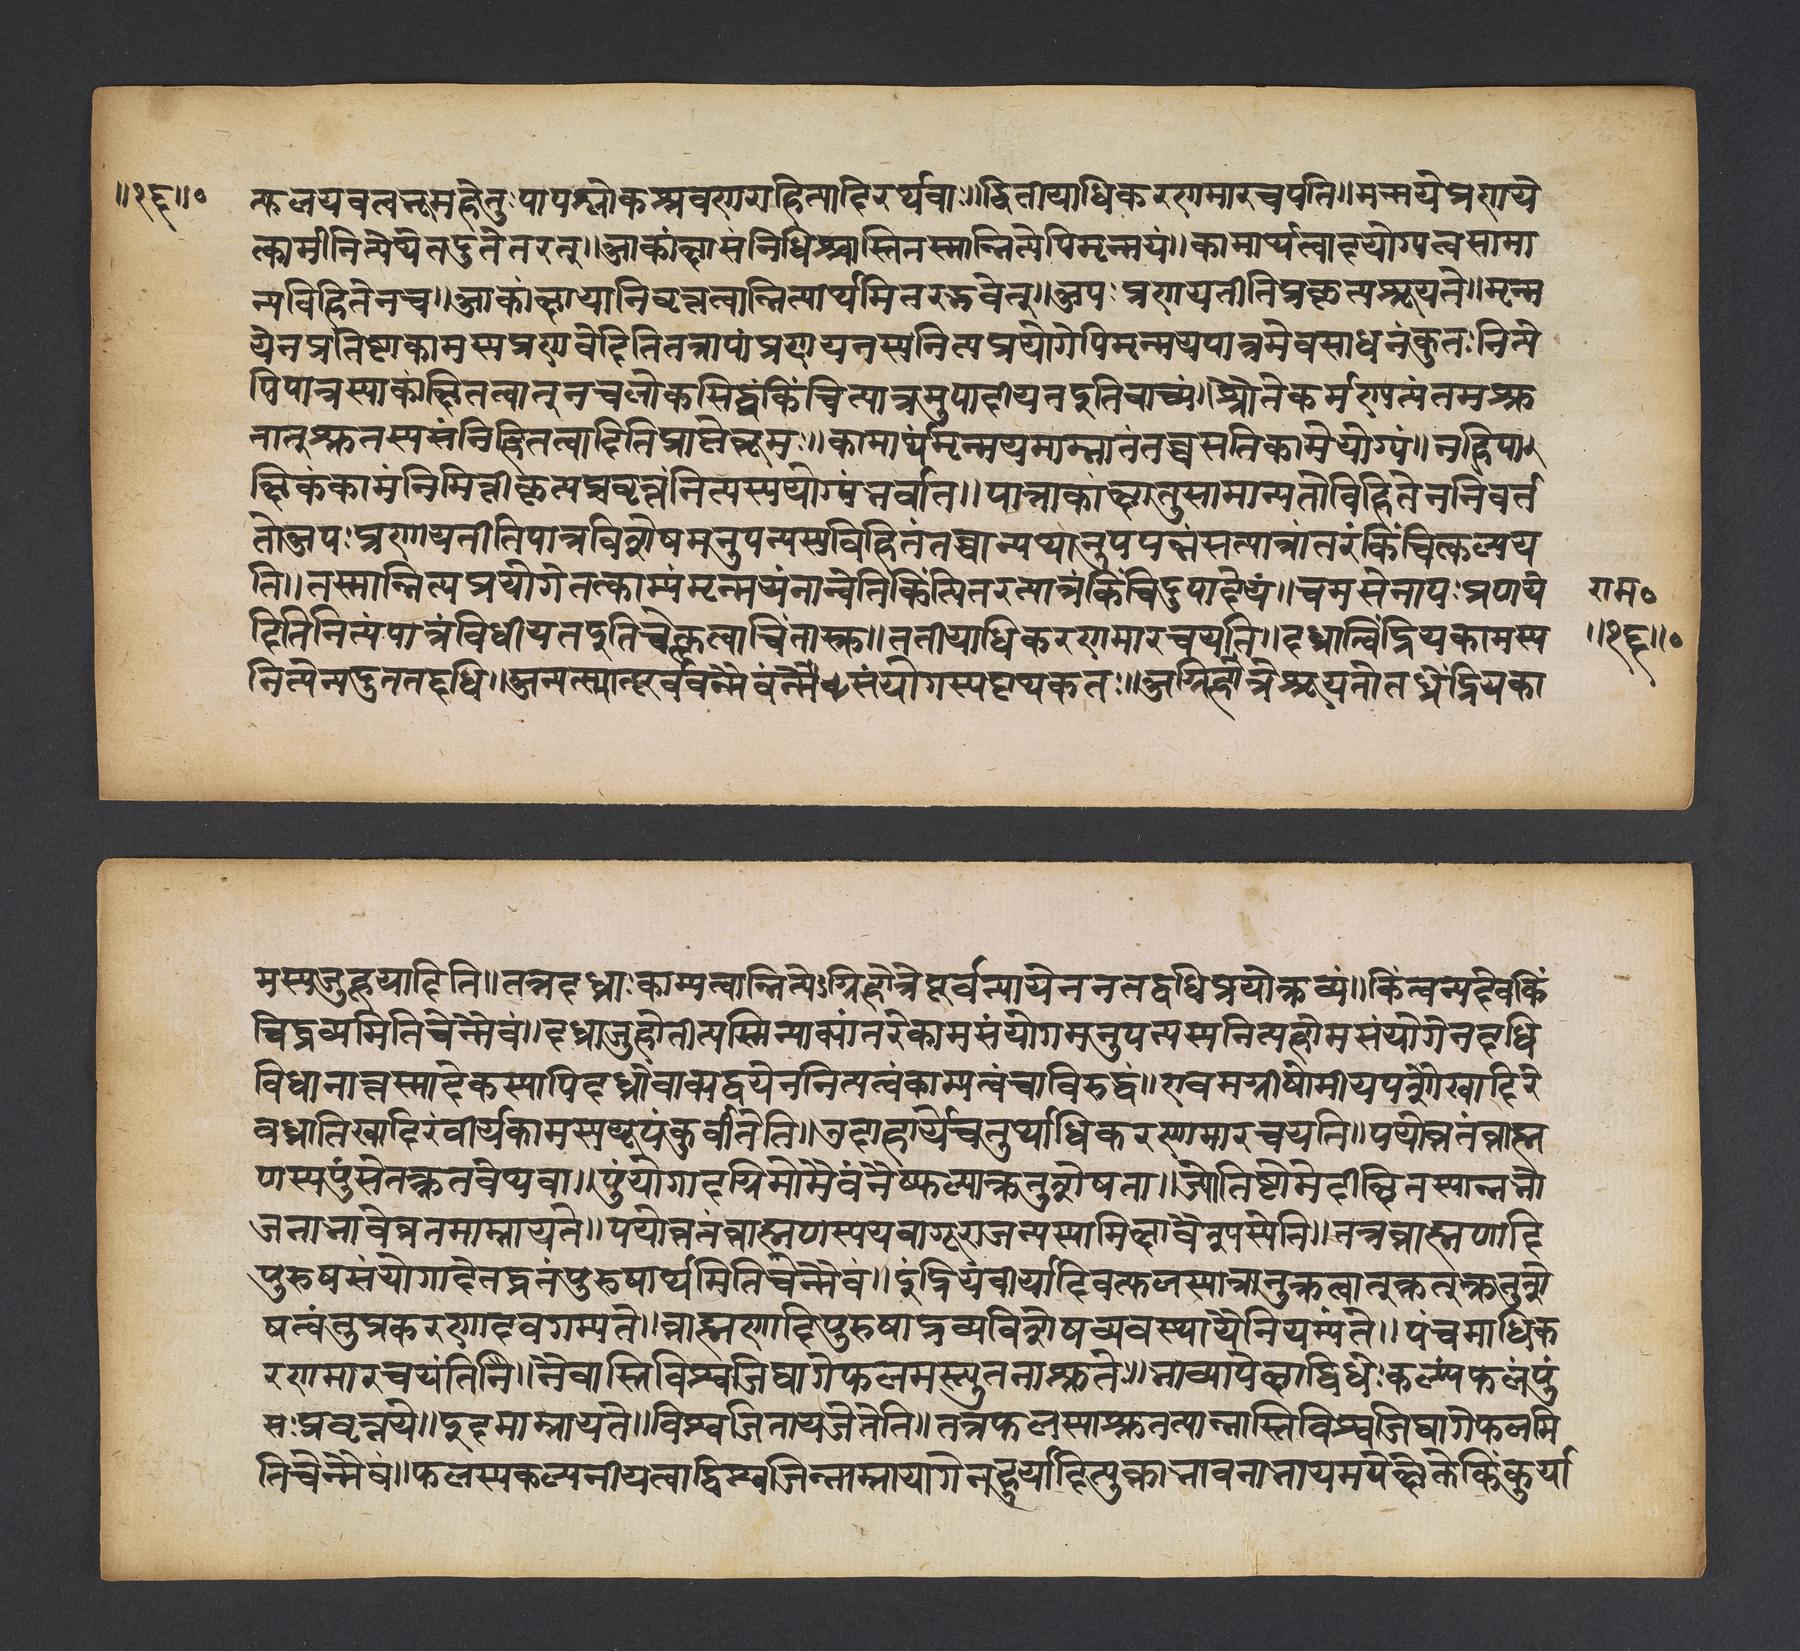 ॥१६॥०
त्फलयवलत्रूमहेतुःपापश्लोकश्रवणराहित्यादिरर्थवाः॥द्वितीयाधिकरणमारचयति॥मृन्मयेप्रणये
त्कामीनित्येप्येतदुतेतरत्॥आकांक्षासंनिधिश्चास्तितस्मान्नित्येपिमृन्मयं॥कामार्थत्वादयोग्यत्वसामा
न्यविहितेनच॥आकांक्षायानिवृत्तत्वान्नित्यार्थमितरद्भवेत्॥अपःप्रणयतीतिप्रकृत्यश्रूयते॥मृन्म
येनप्रतिष्ठाकामस्यप्रणयेदितितत्रापांप्रणयनस्यनित्यप्रयोगेपिमृन्मयपात्रमेवसाधनंकुतःनित्ये
पिपात्रस्याकांक्षितत्वात्नचलोकसिद्धंकिंचित्पात्रमुपादीयतइतिवाच्यं॥श्रौतेकर्मण्यत्यंतमश्रु
तात्श्रुतस्यसंनिहितत्वादितिप्राप्तेब्रूमः॥कामार्थंमृन्मयमाम्नातंतच्चसतिकामेयोग्यं॥नहिपा
क्षिकंकामंनिमित्तीकृत्यप्रवृत्तंनित्यस्ययोग्यंभवति॥पात्राकांक्षातुसामान्यतोविहितेननिवर्त
तेअपःप्रणयतीतिपात्रविशेषमनुपन्यस्यविहितंतच्चान्यथानुपपन्नंसत्पात्रांतरंकिंचित्कल्पय
ति॥तस्मान्नित्यप्रयोगेतत्काम्यंमृन्मयंनान्वेतिकिंत्वितरत्पात्रंकिंचिदुपादेयं॥चमसेनापःप्रणये
राम०
दितिनित्यंपात्रंविधीयतइतिचेत्कृत्वाचिंतास्तु॥तृतीयाधिकरणमारचयति॥दध्नात्विंद्रियकामस्य
॥१६॥०
नित्येन्यदुततद्दधि॥अन्यत्स्यात्पूर्ववन्मैवंन्मैवंसंयोगस्यपृथक्कतः॥अग्निहोत्रेश्रूयतेोतध्नेंद्रियका
मस्यजुहूयादिति॥तत्रदध्नःकाम्यत्वान्नित्येऽग्निहोत्रेपूर्वन्यायेननतद्दधिप्रयोक्तव्यं॥किंत्वन्यदेवकिं
चिद्द्रव्यमितिचेन्मैवं॥दध्नाजुहोतीत्यस्मिन्वाक्यांतरेकामसंयोगमनुपन्यस्यनित्यहोमसंयोगेनदधि
विधानात्तस्मादेकस्यापिदध्नोवाक्यद्वयेननित्यत्वंकाम्यत्वंचाविरुद्धं॥एवमग्नीषोमीयपशौखादिरे
बध्नातिखादिरंवीर्यकामस्ययूपंकुर्वीतेति॥उदाहार्यंचतुर्थाधिकरणमारचयति॥पयोव्रतंब्राह्म
णस्यपुंसेतत्क्रतवेथवा॥पुंयोगादग्रिमोमैवंनैष्फल्यात्क्रतुशेषता॥ज्योतिष्टोमेदीक्षितस्यान्नभो
जनाभावेव्रतमाम्नायते॥पयोव्रतंब्राह्मणस्ययवागूराजन्यस्यामिक्षावैश्यस्येति॥तत्रब्राह्मणादि
पुरुषसंयोगादेतद्व्रतंपुरुषार्थमितिचेन्मैवं॥इंद्रियंवीर्यादिवत्फलस्यात्रानुक्तत्वात्क्रतुक्रतुशे
षत्वंतुप्रकरणादवगम्यते॥ब्राह्मणादिपुरुषाद्रव्यविशेषव्यवस्थायैनियम्यंते॥पंचमाधिक
रणमारचयंतिनि॥नैवास्तिविश्वजिद्यागेफलमस्त्युतनाश्रुतेः॥भाव्यापेक्षाद्विधेःकल्प्यंफलंपुं
सःप्रवृत्तये॥इदमाम्नायते॥विश्वजितायजेतेति॥तत्रफलस्याश्रुतत्वान्नास्तिविश्वजिद्यागेफलमि
तिचेन्मैवं॥फलस्यकल्पनीयत्वाद्विश्वजिन्नाम्नायागेनकुर्यादित्युक्ताभावनाभाव्यमपेक्षतेकिंकुर्या